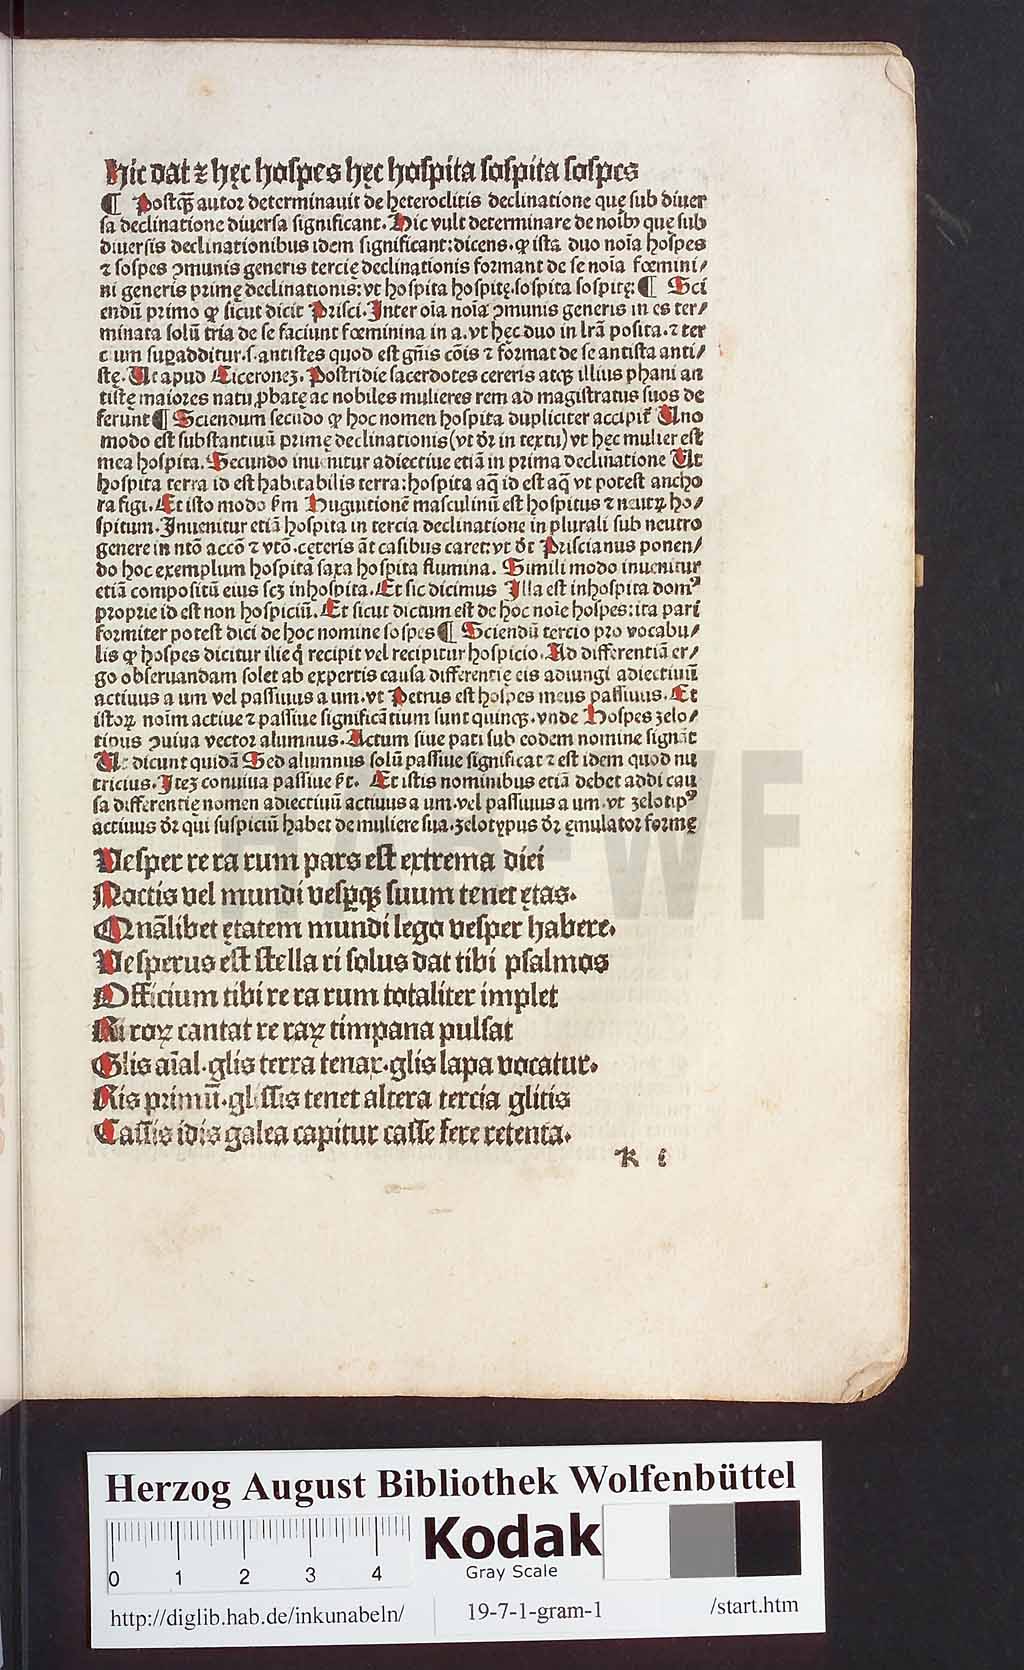 Hic dat ⁊ hęc hospes hęc hospita sospita sospes
¶ Postqꝫ̄ autor determinauit de heteroclitis declinatione quę sub diuer
sa declinatione diuersa significant. Hic vult determinare de noībꝰ quę sub
diuersis declinationibus idem significant: dicens. ꝙ ista duo noīa hospes
⁊ sospes ꝯmunis generis tercię declinationis formant de se noīa fœmini/
ni generis primę declinationis: vt hospita hospitę. sospita sospitę: ¶ Sci
endū primo ꝙ sicut dicit Prisci. Inter oīa noīa ꝯmunis generis in es ter/
minata solū tria de se faciunt fœminina in a. vt hęc duo in lrā posita. ⁊ ter
cium suꝑadditur. s. antistes quod est gn̄is cōis ⁊ format de se antista anti/
stę. Ut apud Ciceroneꝫ. Postridie sacerdotes cereris atqꝫ illius phani an
tistę maiores natu ꝓbatę ac nobiles mulieres rem ad magistratus suos de
ferunt ¶ Sciendum secūdo ꝙ hoc nomen hospita dupliciter accipit̄ Uno
modo est substantiuū primę declinationis (vt dr̄ in textu) vt hęc mulier est
mea hospita. Secundo inuenitur adiectiue etiā in prima declinatione Ut
hospita terra id est habitabilis terra: hospita aq̄ id est aq̄ vt potest ancho
ra figi. Et isto modo ẜm Huguitionē masculinū est hospitus ⁊ neutꝝ ho/
spitum. Inuenitur etiā hospita in tercia declinatione in plurali sub neutro
genere in ntō accō ⁊ vtō. ceteris āt casibus caret: vt dt̄ Priscianus ponen/
do hoc exemplum hospita saxa hospita flumina. Simili modo inuenitur
etiā compositū eius scꝫ inhospita. Et sic dicimus Illa est inhospita domꝰ
proprie id est non hospiciū. Et sicut dictum est de hoc noīe hospes: ita pari
formiter potest dici de hoc nomine sospes ¶ Sciendū tercio pro vocabu/
lis ꝙ hospes dicitur ille q̇ recipit vel recipitur hospicio. Ad differentiā er/
go obseruandam solet ab expertis causa differentię eis adiungi adiectiuū
actiuus a um vel passiuus a um. vt Petrus est hospes meus passiuus. Et
istoꝝ noīm actiue ⁊ passiue significātium sunt quinqꝫ. vnde Hospes zelo/
tipus ꝯuiua vector alumnus. Actum siue pati sub eodem nomine signāt
Ut dicunt quidā Sed alumnus solū passiue significat ⁊ est idem quod nu
tricius. Iteꝫ conuiua passiue Et istis nominibus etiā debet addi cau
sa differentię nomen adiectiuū actiuus a um. vel passiuus a um. vt zelotipꝰ
actiuus dr̄ qui suspiciū habet de muliere sua. zelotypus dr̄ ęmulator formę
Vesper re ra rum pars est extrema diei
Noctis vel mundi vesꝑqꝫ suum tenet ętas.
Qnālibet ętatem mundi lego vesper habere.
Vesperus est stella ri solus dat tibi psalmos
Officium tibi re ra rum totaliter implet
Ri roꝝ cantat re raꝝ timpana pulsat
Glis aīal. glis terra tenax. glis lapa vocatur.
Ris primū. glissis tenet altera tercia glitis
Cassis idis galea capitur casse fere retenta.
K
HAB-WF
Herzog August Bibliothek Wolfenbüttel
Kodak
Gray Scale
0 1 2 3 4
http://diglib.hab.de/inkunabeln/ 19-7-1-gram-1 /start.htm